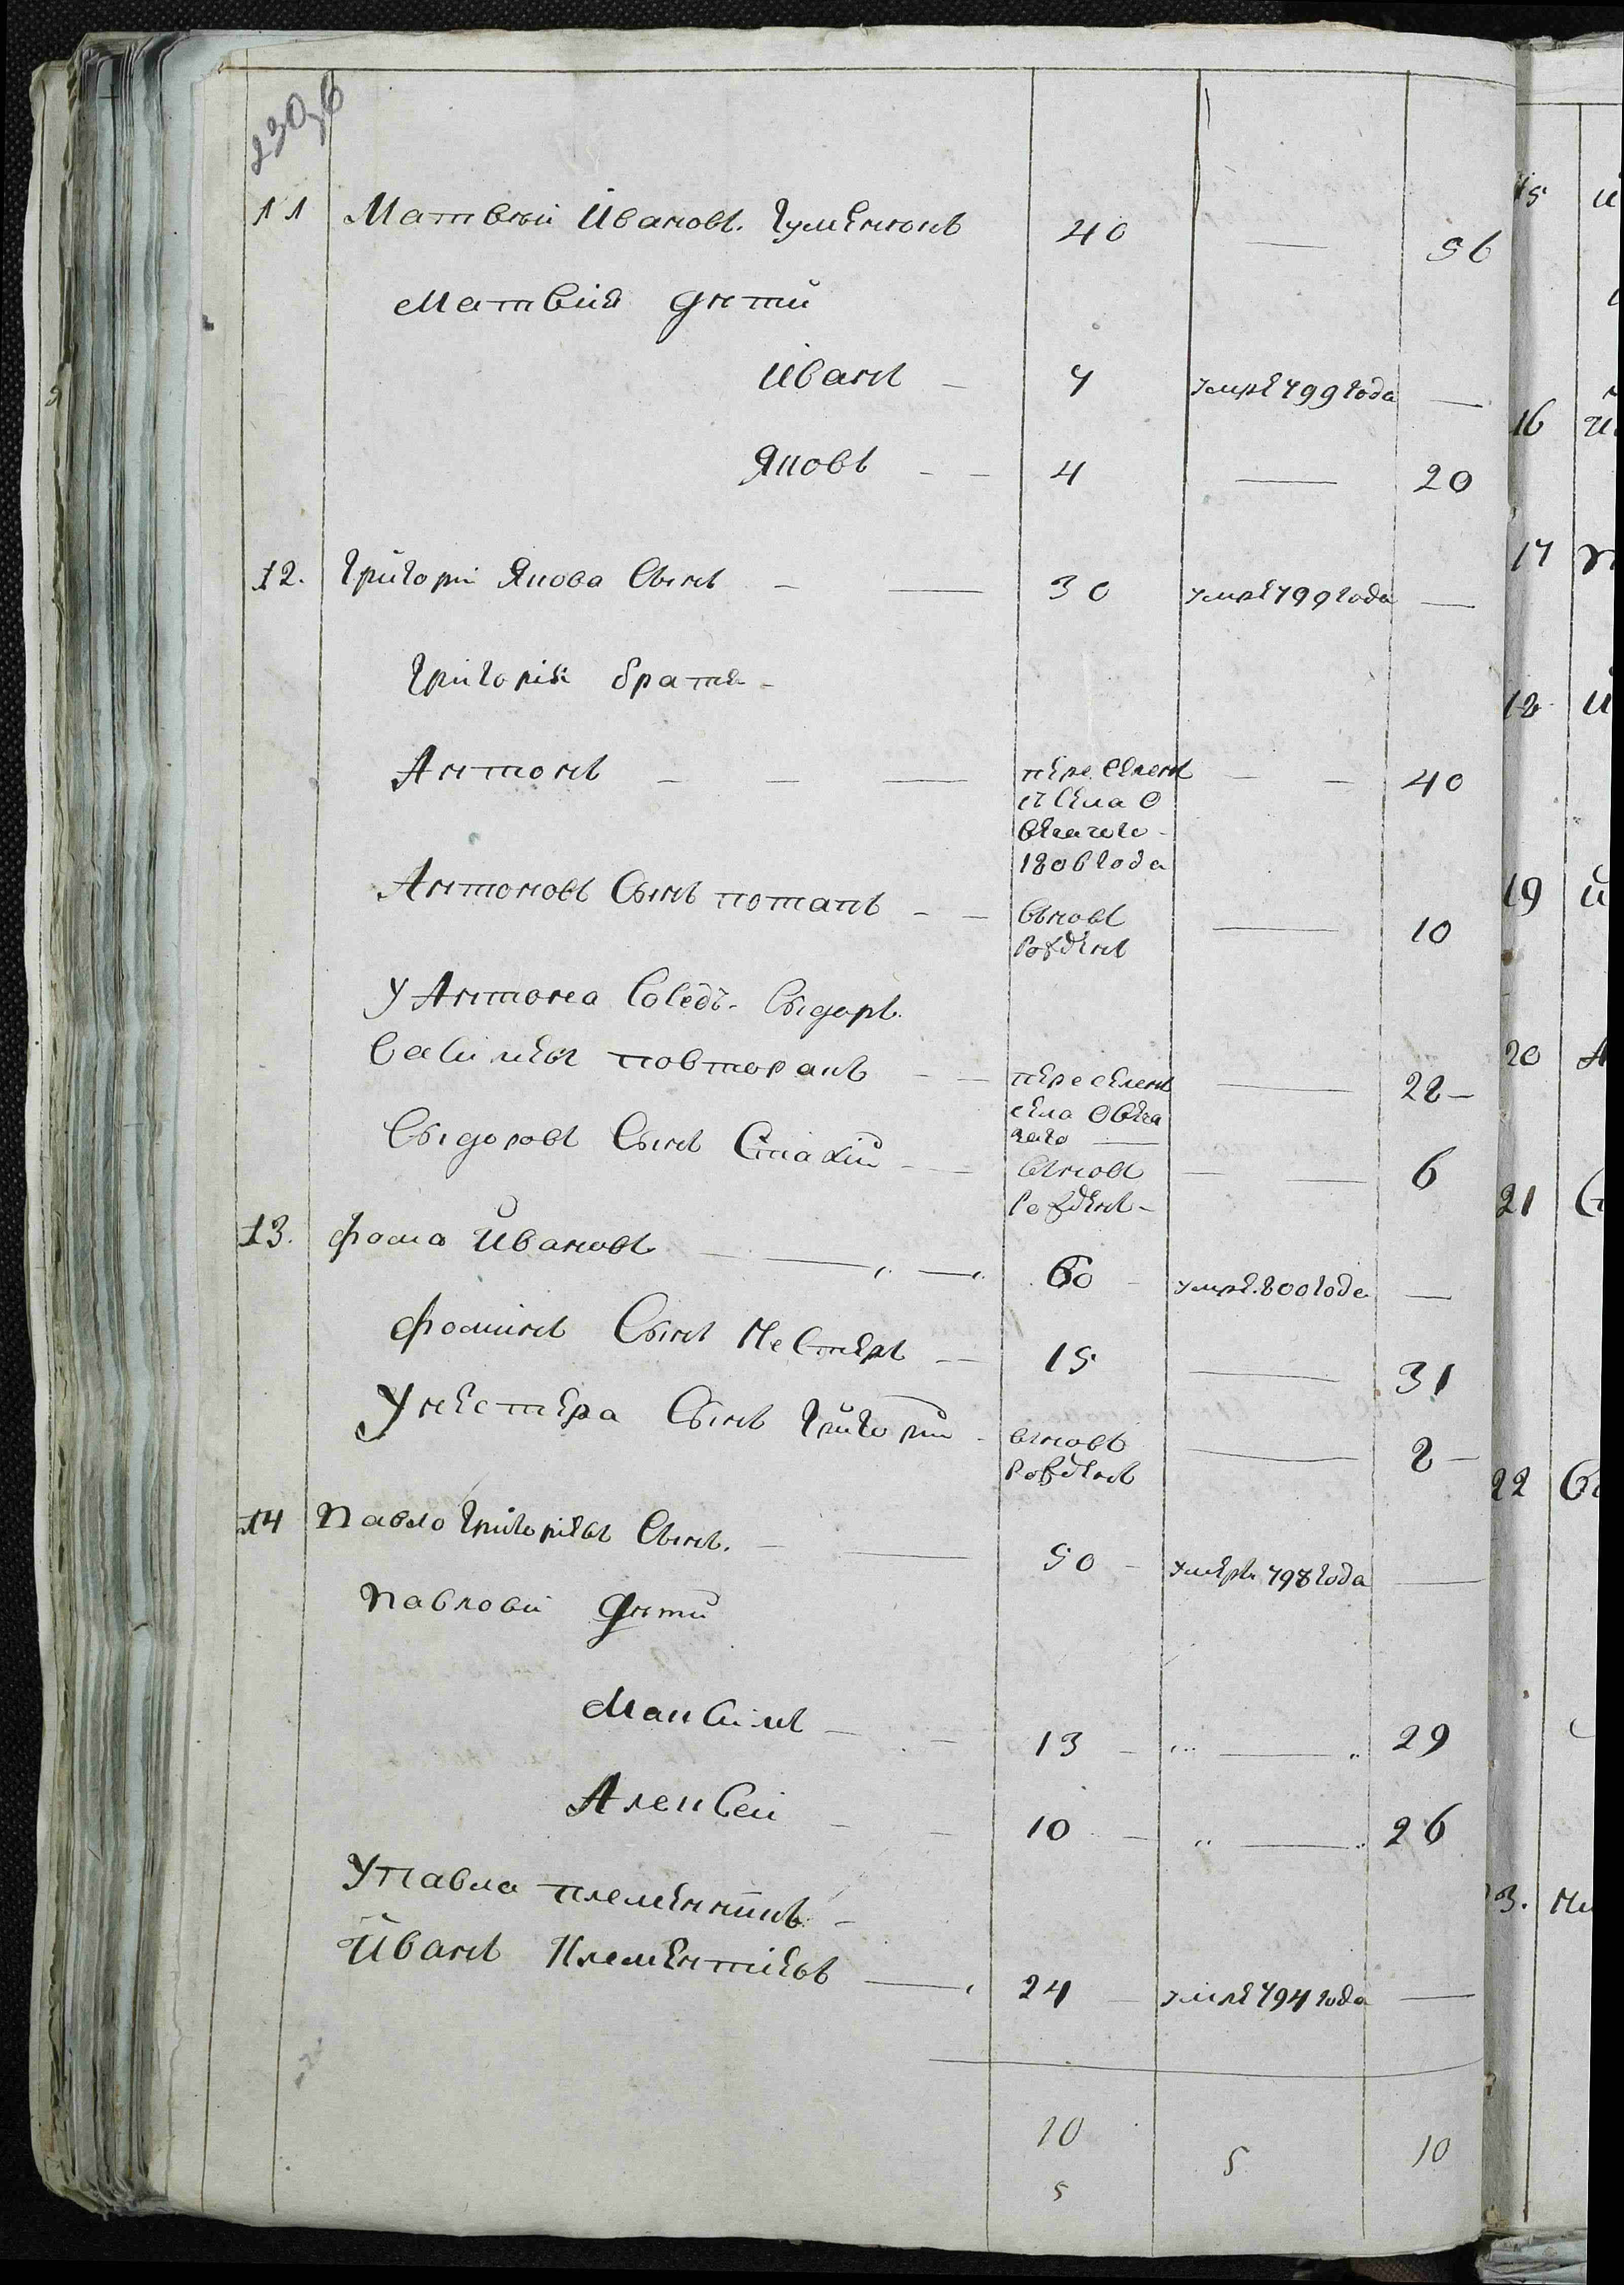 230об
11 Матвѣй Ивановъ Гуменюкъ 40 — 56
Матвія дѣти
Иванъ — 7 умре 799 года —
Яковъ — — 4 — 20
12. Григорій Якова Сынъ — — 30 умре 799 года —
Григорія братя —
Антонъ — — — переселенъ — — 40
съ села О
1806 года
Антоновъ Сынъ потапъ — — вновъ — 10
рожденъ
У Антона Соседъ Сыдоръ
повторакъ — — переселенъ — 22 —
села
Сыдоровъ Сынъ Стахій — — вновъ — — 6
рожденъ —
13. Фома Ивановъ — — 60 — умре 800 года —
Фоминъ Сынъ Нестеръ — 15 — 31
У нестера Сынъ Григорій — вновъ — 2 —
рожденъ
14 Павло Григоріевъ Сынъ. — — 50 — умеръ 798 года —
Павлови дѣти
Максимъ — — 13 — „ — „ 29
Алексей — — 10 — „ — „ 26
У павла племенникъ —
Иванъ — 24 — умре 794 года —
10 5 10
5
15
16
17
18
19
20
21
22